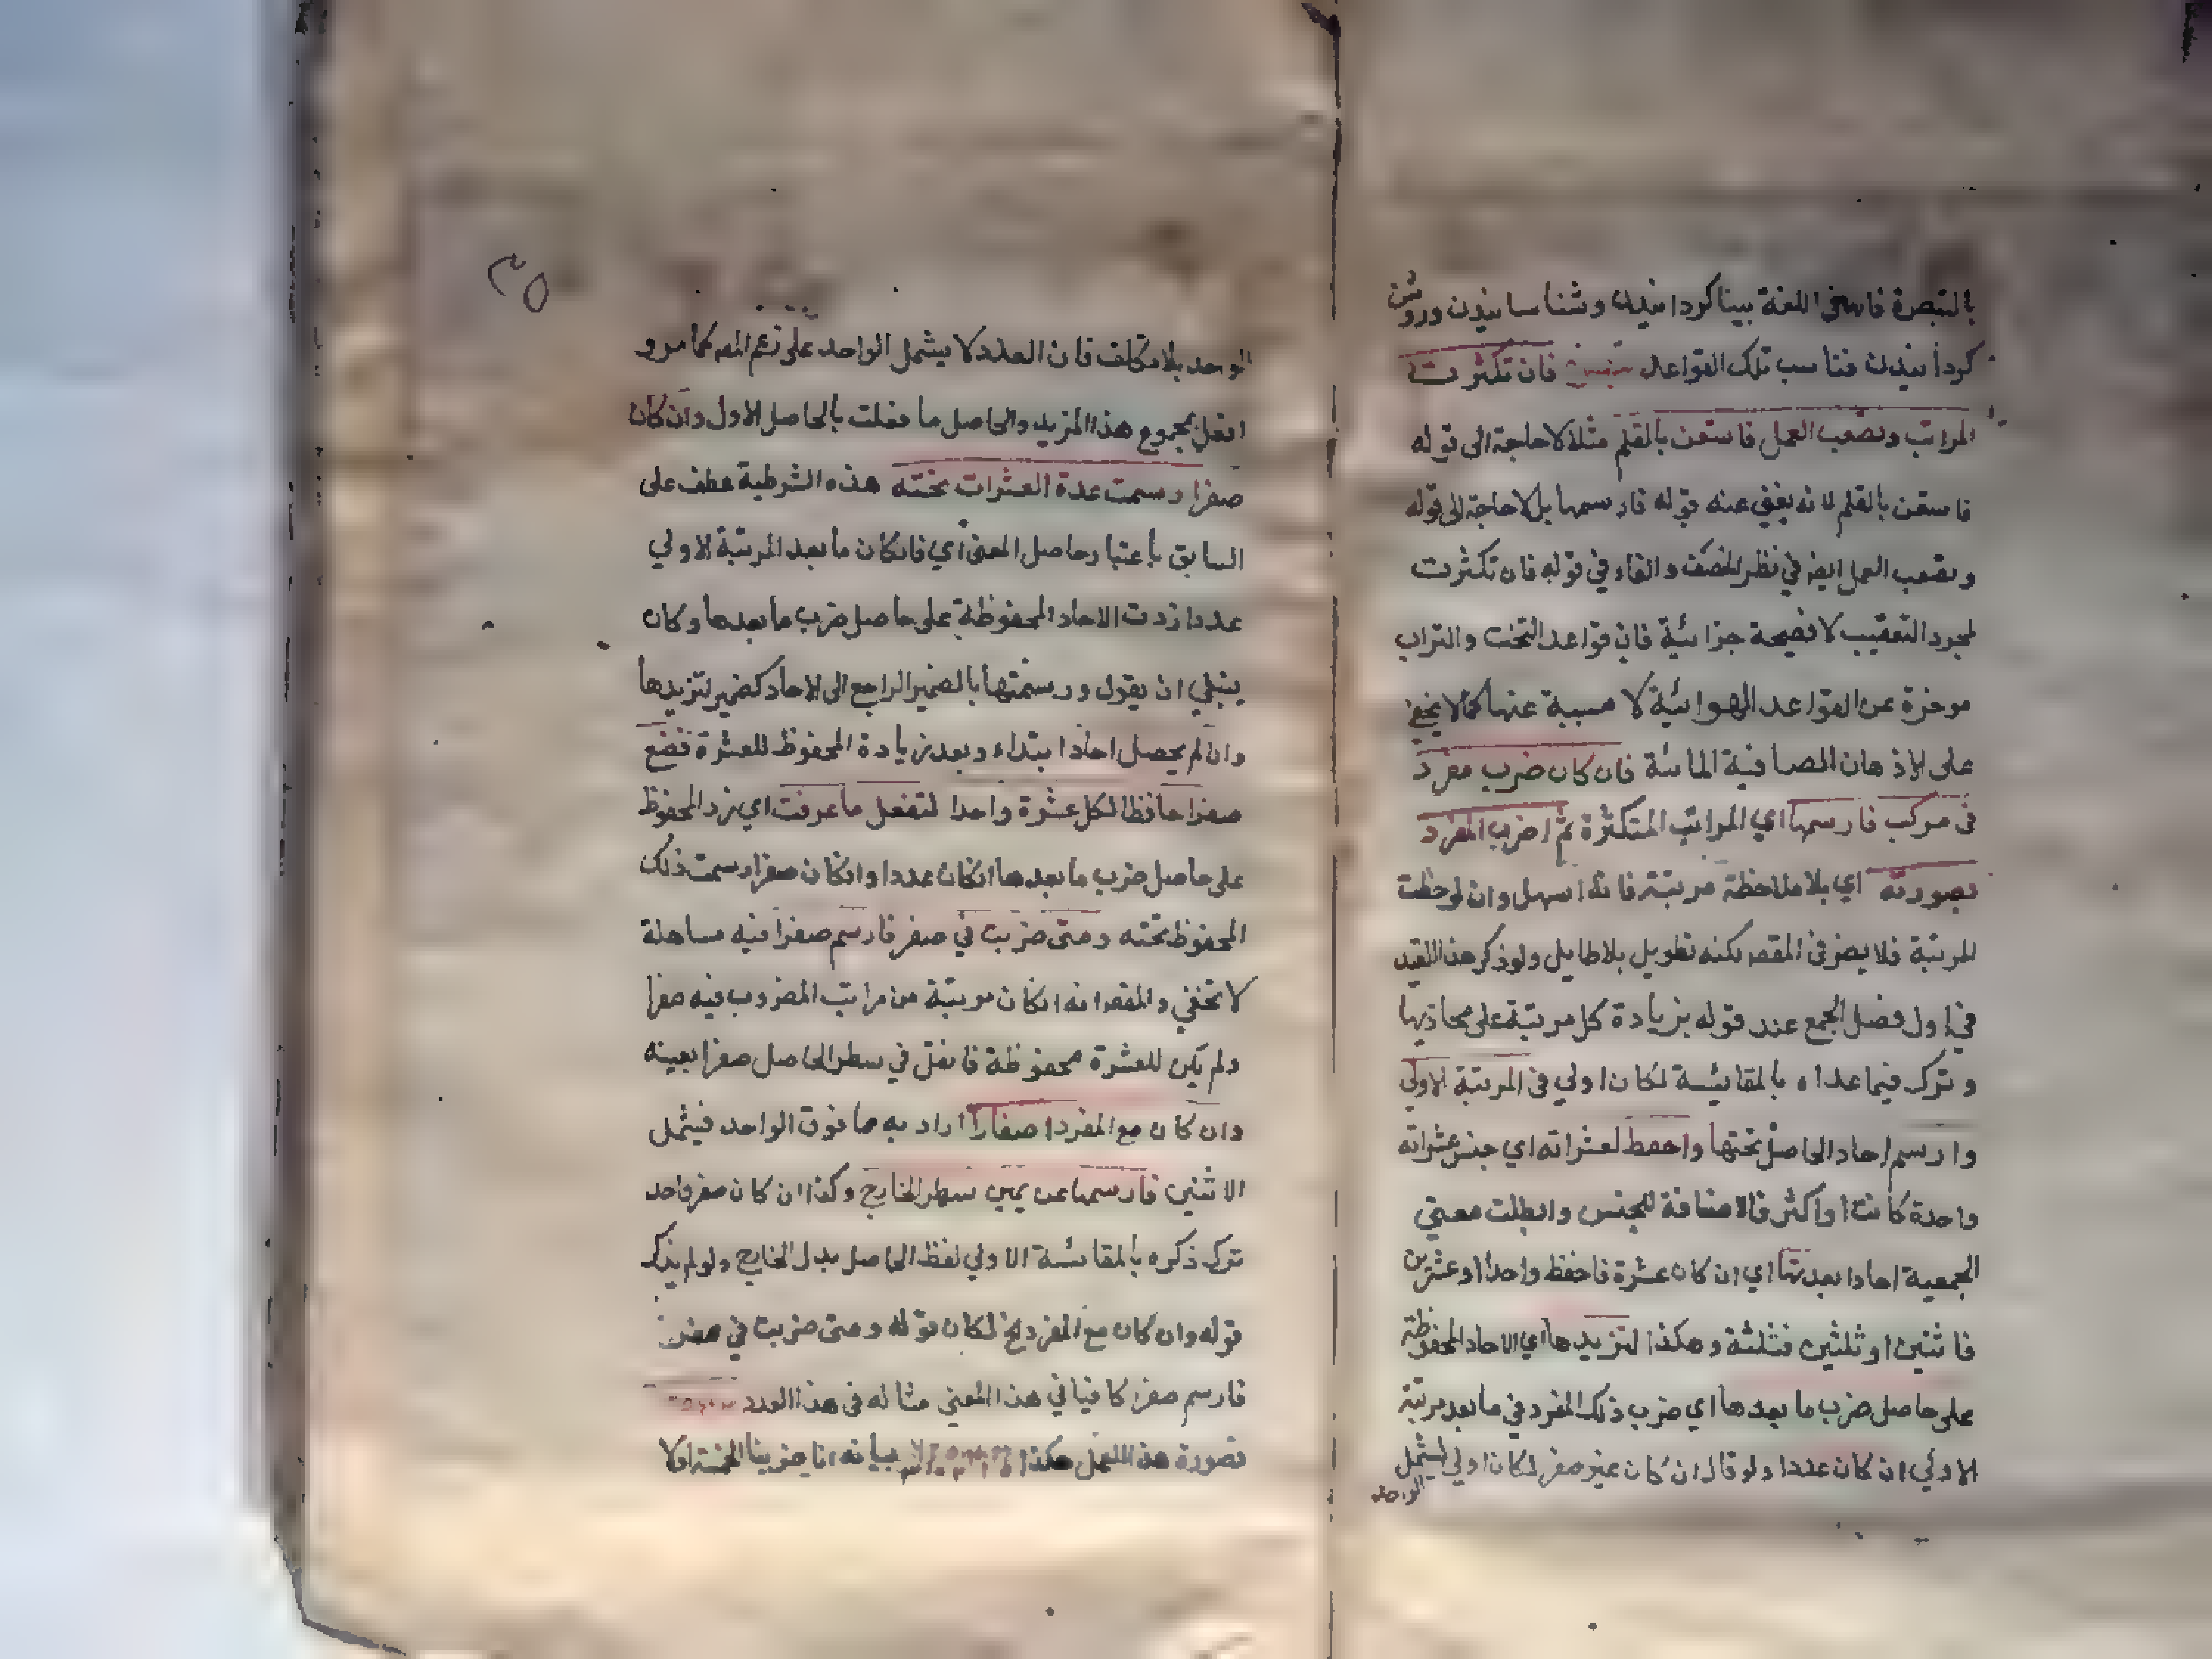 بالتبصرة فانها في اللغة بينا كردانيدن وشناسانيدن وروشن
كردانيدن فناسب تلك القواعد فان تكثرت
المراتب وتصعب العمل فاستعن بالقلم مثلا لا حاجة الى قوله
فاستعن بالقلم لانه يغني عنه قوله فارسمها بل لا حاجة الى قوله
وتصعب العمل ايضا في نظر المصنف والفاء في قوله فان تكثرت
لمجرد التعقيب لا فصيحة جزائية فان قواعد التخت والتراب
موخرة عن القواعد الهوائية لا مسببة عنها كما لا يخفى
على الاذهان الصافية المائية فان كان ضرب مفرد
في مركب فارسمها اي المراتب المتكثرة ثم اضرب المفرد
بصورته اي بلا ملاحظة مرتبته فانه اسهل وان لوحظت
المرتبة فلا يضر في المقصد لكنه تطويل بلا طايل ولو ذكر هذا القيد
في اول فصل الجمع عند قوله بزيادة كل مرتبة على محاذيها
وترك فيما عداه بالمقايسة لكان اولي في المرتبة الاولى
وارسم احاد الحاصل تحتها واحفظ لعشراته اي جنس عشراته
واحدة كانت او اكثر فالاضافة للجنس وابطلت معنى
الجمعية احادا بعدتها اي ان كان عشرة فاحفظ واحدا او عشرين
فاثنين او ثلثين فثلثة وهكذا لتزيدها اي الاحاد المحفوظة
على حاصل ضرب ما بعدها اي ضرب ذلك المفرد في ما بعد مرتبة
الاولي ان كان عددا ولو قال ان كان غير صفر لكان اولي ليشمل
الواحد
٣٥
الواحد بلا تكلف فان العدد لا يشمل الواحد على زعم المص كما مر و
افعل بمجموع هذا المزيد والحاصل ما فعلت بالحاصل الاول وان كان
صفرا رسمت عدة العشرات تحته هذه الشرطية عطف على
السابق باعتبار حاصل المعنى اي فانكان ما بعد المرتبة الاولي
عددا زدت الاحاد المحفوظة على حاصل ضرب ما بعدها وكان
ينبغي ان يقول ورسمتها بالضمير الراجع الى الاحاد كضمير لتزيدها
وان لم يحصل احاد ابتداء وبعد زيادة المحفوظ للعشرة فضع
صفرا حافظا لكل عشرة واحدا لتفعل ما عرفت اي زد المحفوظ
على حاصل ضرب ما بعدها انكان عددا وانكان صفرا رسمت ذلك
المحفوظ تحته ومتى ضربت في صفر فارسم صفرا فيه مساهلة
لا تخفي والمقصد انه انكان مرتبة من مراتب المضروب فيه صفرا
ولم يكن للعشرة محفوظة فانقل في سطر الحاصل صفرا بعينه
وان كان مع المفرد اصفارا اراد به ما فوق الواحد فيشمل
الاثنين فارسمها عن يمين سطر الخارج وكذا ان كان صفر واحد
ترك ذكره بالمقائسة الاولي لفظ الحاصل بدل الخارج ولو لم يذكر
قوله وان كان مع المفرد الخ لكان قوله ومتى ضربت في صفر
فارسم صفرا كافيا في هذا المعني مثاله في هذا العدد
فصورة هذا العمل هكذا بيانه انا ضربنا الخمسة اولا